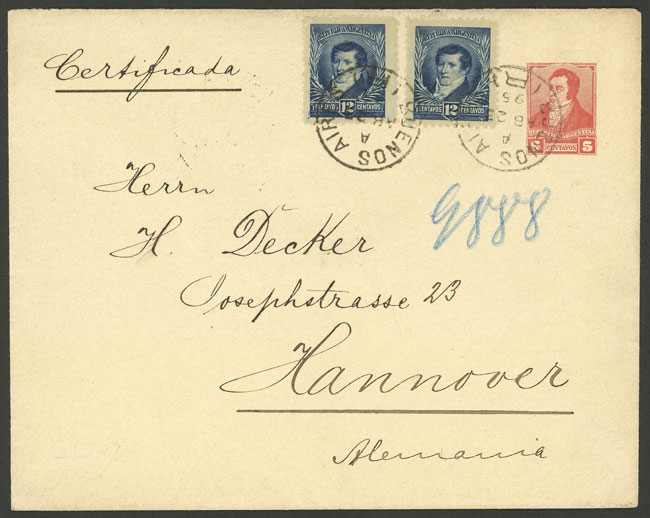 Certificada
REPUBLICA ARGENTINA
CENTAVOS 12 CENTAVOS
REPUBLICA ARGENTINA
CENTAVOS 12 CENTAVOS
REPUBLICA ARGENTINA
5 CENTAVOS 5
BUENOS AIRES
BUENOS AIRES
95
9888
Herrn
H. Decker
Josephstrasse 23
Hannover
Alemania